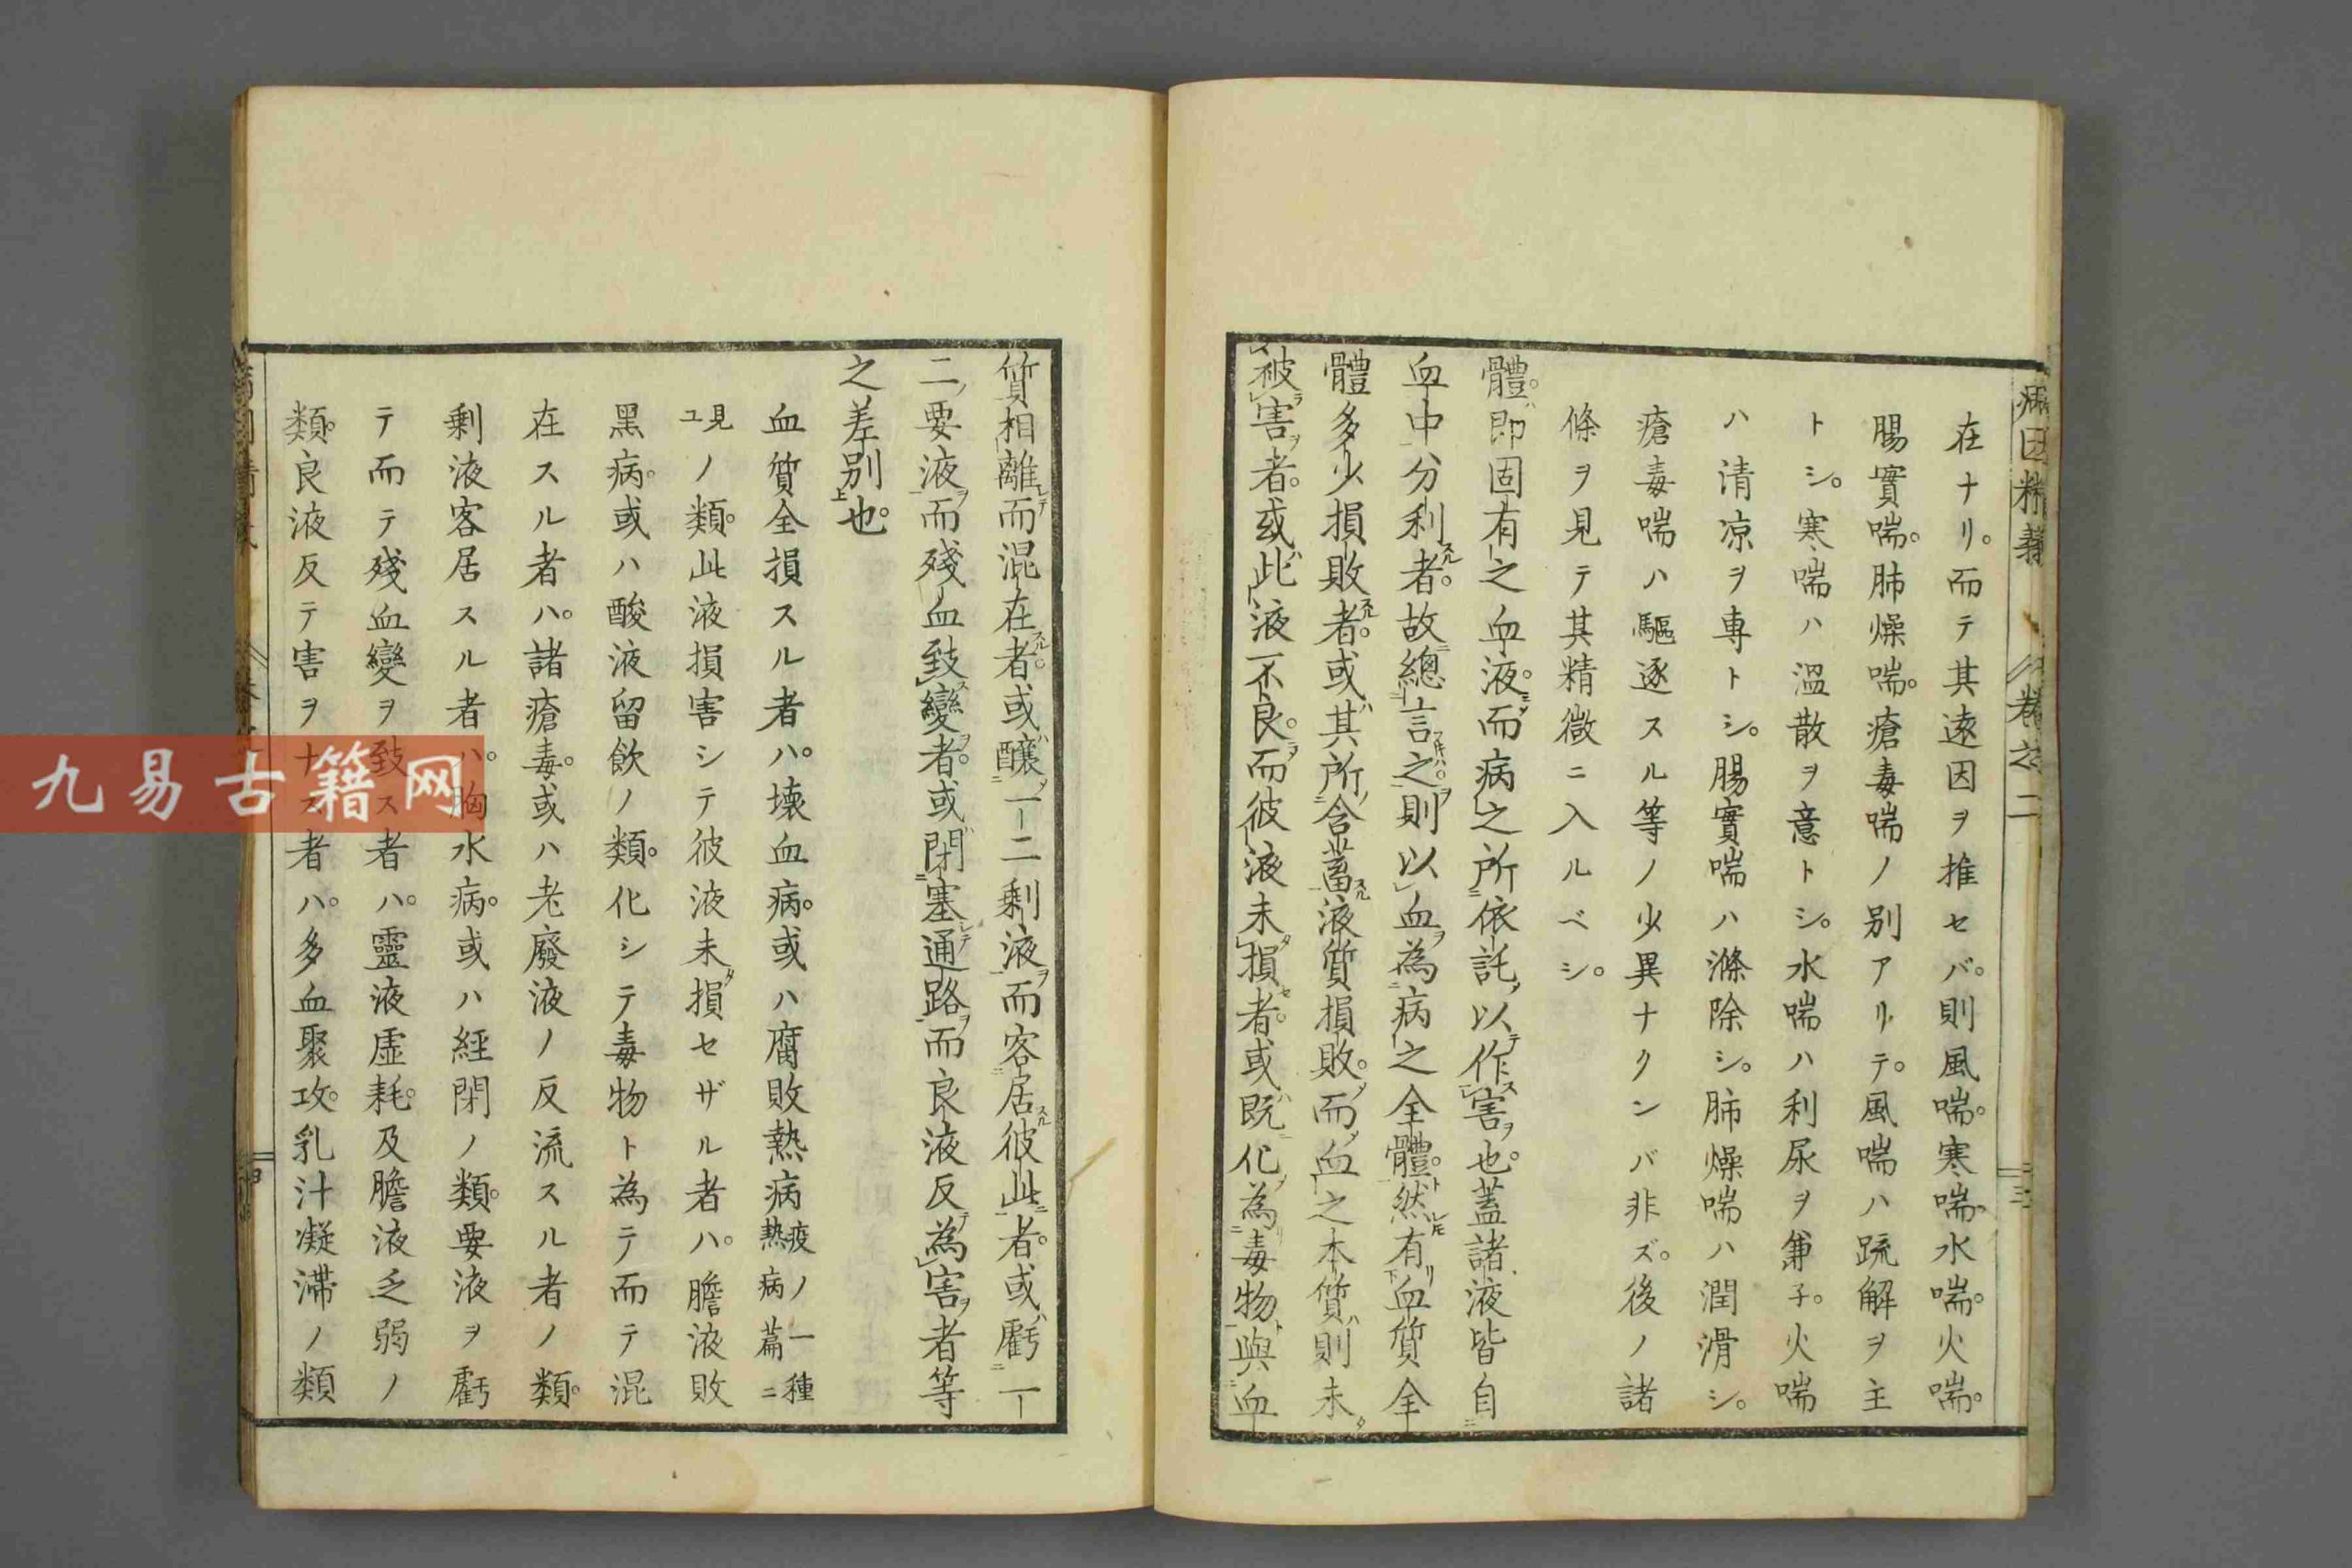 病因精義 卷之二
在ナリ。而テ其遠因ヲ推セバ。則風喘。寒喘、水喘。火喘。
腸實喘。肺燥喘。瘡毒喘ノ別アリテ。風喘ハ疏解ヲ主
トシ。寒喘ハ溫散ヲ意トシ。水喘ハ利尿ヲ兼子。火喘
ハ清凉ヲ専トシ。腸實喘ハ滌除シ。肺燥喘ハ潤滑シ。
瘡毒喘ハ驅逐スル等ノ少異ナクンバ非ズ。後ノ諸
條ヲ見テ其精微ニ入ルベシ。
體。即固有之血液。而病之所依託、以作害也。蓋諸液皆自
血中分利者。故總言之則以血為病之全體。然有血質全
體多少損敗者。或其所含蓄液質損敗。而血之本質則未
被害者。或此液不良。而彼液未損者。或既化為毒物與血
質相離而混在者。或釀一二剩液而容居彼此者。或虧一
二要液而殘血致變者。或閉塞通路而良液反為害者等
之差別也。
血質全損スル者ハ。壊血病。或ハ腐敗熱病疫ノ一種熱病篇ニ
見ユノ類。此液損害シテ彼液未損セザル者ハ。膽液敗
黑病。或ハ酸液留飲ノ類。化シテ毒物ト為テ而テ混
在スル者ハ。諸瘡毒。或ハ老廢液ノ反流スル者ノ類。
剰液客居スル者ハ。胸水病。或ハ経閉ノ類。要液ヲ虧
テ而テ殘血變ヲ致ス者ハ。靈液虚耗。及膽液乏弱ノ
類。良液反テ害ヲナス者ハ。多血聚攻。乳汁凝滯ノ類
九易古籍网